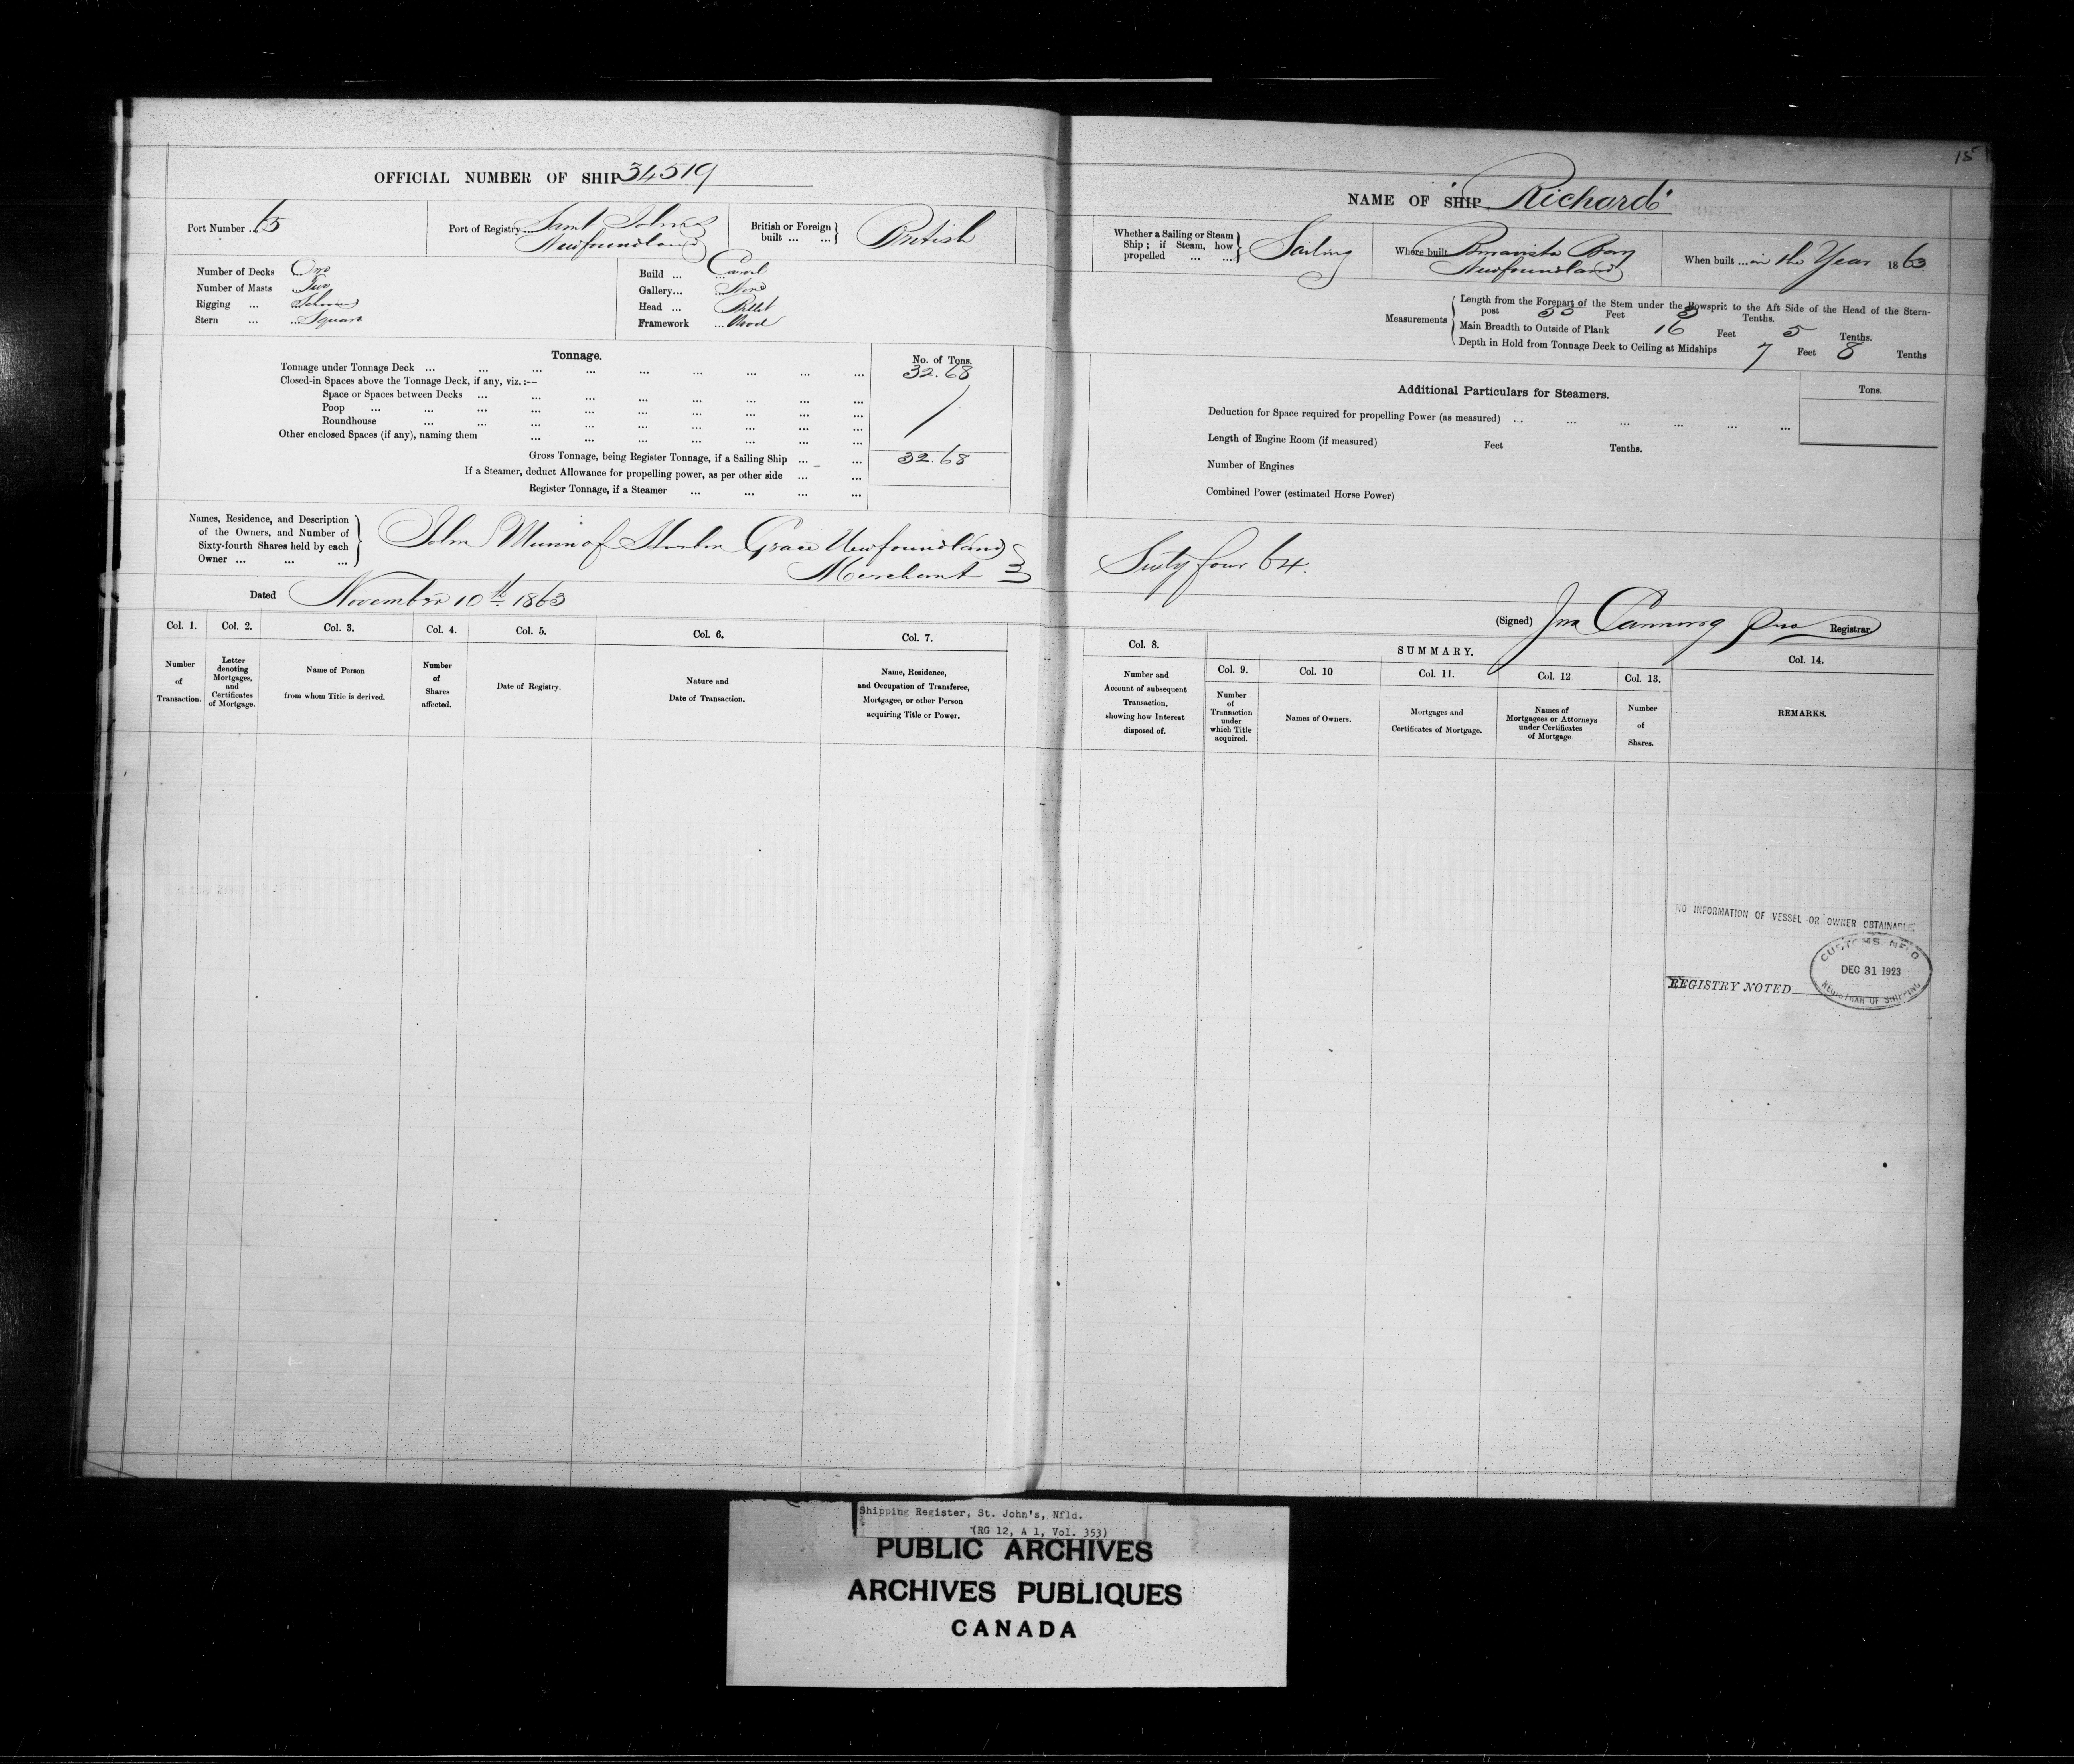 15
OFFICIAL NUMBER OF SHIP 34519
NAME OF SHIP "Richard"
Port Number .. 65
Port of Registry ... Saint John's
Newfoundland
British or Foreign
built ... ...
British
Whether a Sailing or Steam
Ship ; if Steam, how
propelled ... ...
Sailing
Where built Bonavista Bay
Newfoundland
When built ... in the Year 1863
Number of Decks ... One
Number of Masts ... Two
Rigging ... ... Schooner
Stern ... ... Square
Build ... ... Carvel
Gallery... ... None
Head ... ... Billet
Framework ... Wood
Measurements
Length from the Forepart of the Stem under the Bowsprit to the Aft Side of the Head of the Stern-
post 53 Feet 3 Tenths.
Main Breadth to Outside of Plank 16 Feet 5 Tenths.
Depth in Hold from Tonnage Deck to Ceiling at Midships 7 Feet 8 Tenths
Tonnage.
No. of Tons.
Tonnage under Tonnage Deck ... ... ... ... ... ... ... ... ... 32.68
Closed-in Spaces above the Tonnage Deck, if any, viz. :—
Space or Spaces between Decks ... ... ... ... ... ... ... ...
Poop ... ... ... ... ... ... ... ... ... ...
Roundhouse ... ... ... ... ... ... ... ... ...
Other enclosed Spaces (if any), naming them ... ... ... ... ... ... ...
Gross Tonnage, being Register Tonnage, if a Sailing Ship ... ... 32.68
If a Steamer, deduct Allowance for propelling power, as per other side ... ...
Register Tonnage, if a Steamer ... ... ... ...
Additional Particulars for Steamers.
Tons.
Deduction for Space required for propelling Power (as measured) ... ... ... ... ... ...
Length of Engine Room (if measured) Feet Tenths.
Number of Engines
Combined Power (estimated Horse Power)
Names, Residence, and Description
of the Owners, and Number of
Sixty-fourth Shares held by each
Owner ... ... ...
John Munn of Harbor Grace Newfoundland
Merchant
Sixty four 64.
Dated November 10th 1863
(Signed) Jno Canning Registrar
Col. 1. Col. 2. Col. 3. Col. 4. Col. 5. Col. 6. Col. 7.
Number
of
Transaction.
Letter
denoting
Mortgages,
and
Certificates
of Mortgage.
Name of Person
from whom Title is derived.
Number
of
Shares
affected.
Date of Registry.
Nature and
Date of Transaction.
Name, Residence,
and Occupation of Transferee,
Mortgagee, or other Person
acquiring Title or Power.
Col. 8.
Number and
Account of subsequent
Transaction,
showing how Interest
disposed of.
SUMMARY.
Col. 9. Col. 10 Col. 11. Col. 12 Col. 13.
Number
of
Transaction
under
which Title
acquired.
Names of Owners.
Mortgages and
Certificates of Mortgage.
Names of
Mortgagees or Attorneys
under Certificates
of Mortgage.
Number
of
Shares.
Col. 14.
REMARKS.
NO INFORMATION OF VESSEL OR OWNER OBTAINABLE.
REGISTRY NOTED
CUSTOMS. NFLD
DEC 31 1923
REGISTRAR OF SHIPPING
Shipping Register, St. John's, Nfld.
(RG 12, A 1, Vol. 353)
PUBLIC ARCHIVES
ARCHIVES PUBLIQUES
CANADA